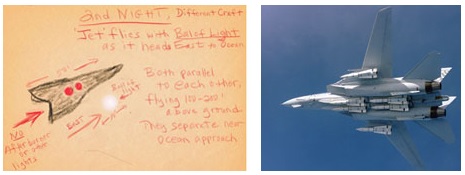 2nd NIGHT, Different Craft
"Jet" flies with Ball of Light
as it heads East to Ocean
Both parallel
to each other,
flying 100-200'
above ground
They separate near
ocean approach
Ball of
Light
EAST
NO
Afterburner
or other
lights